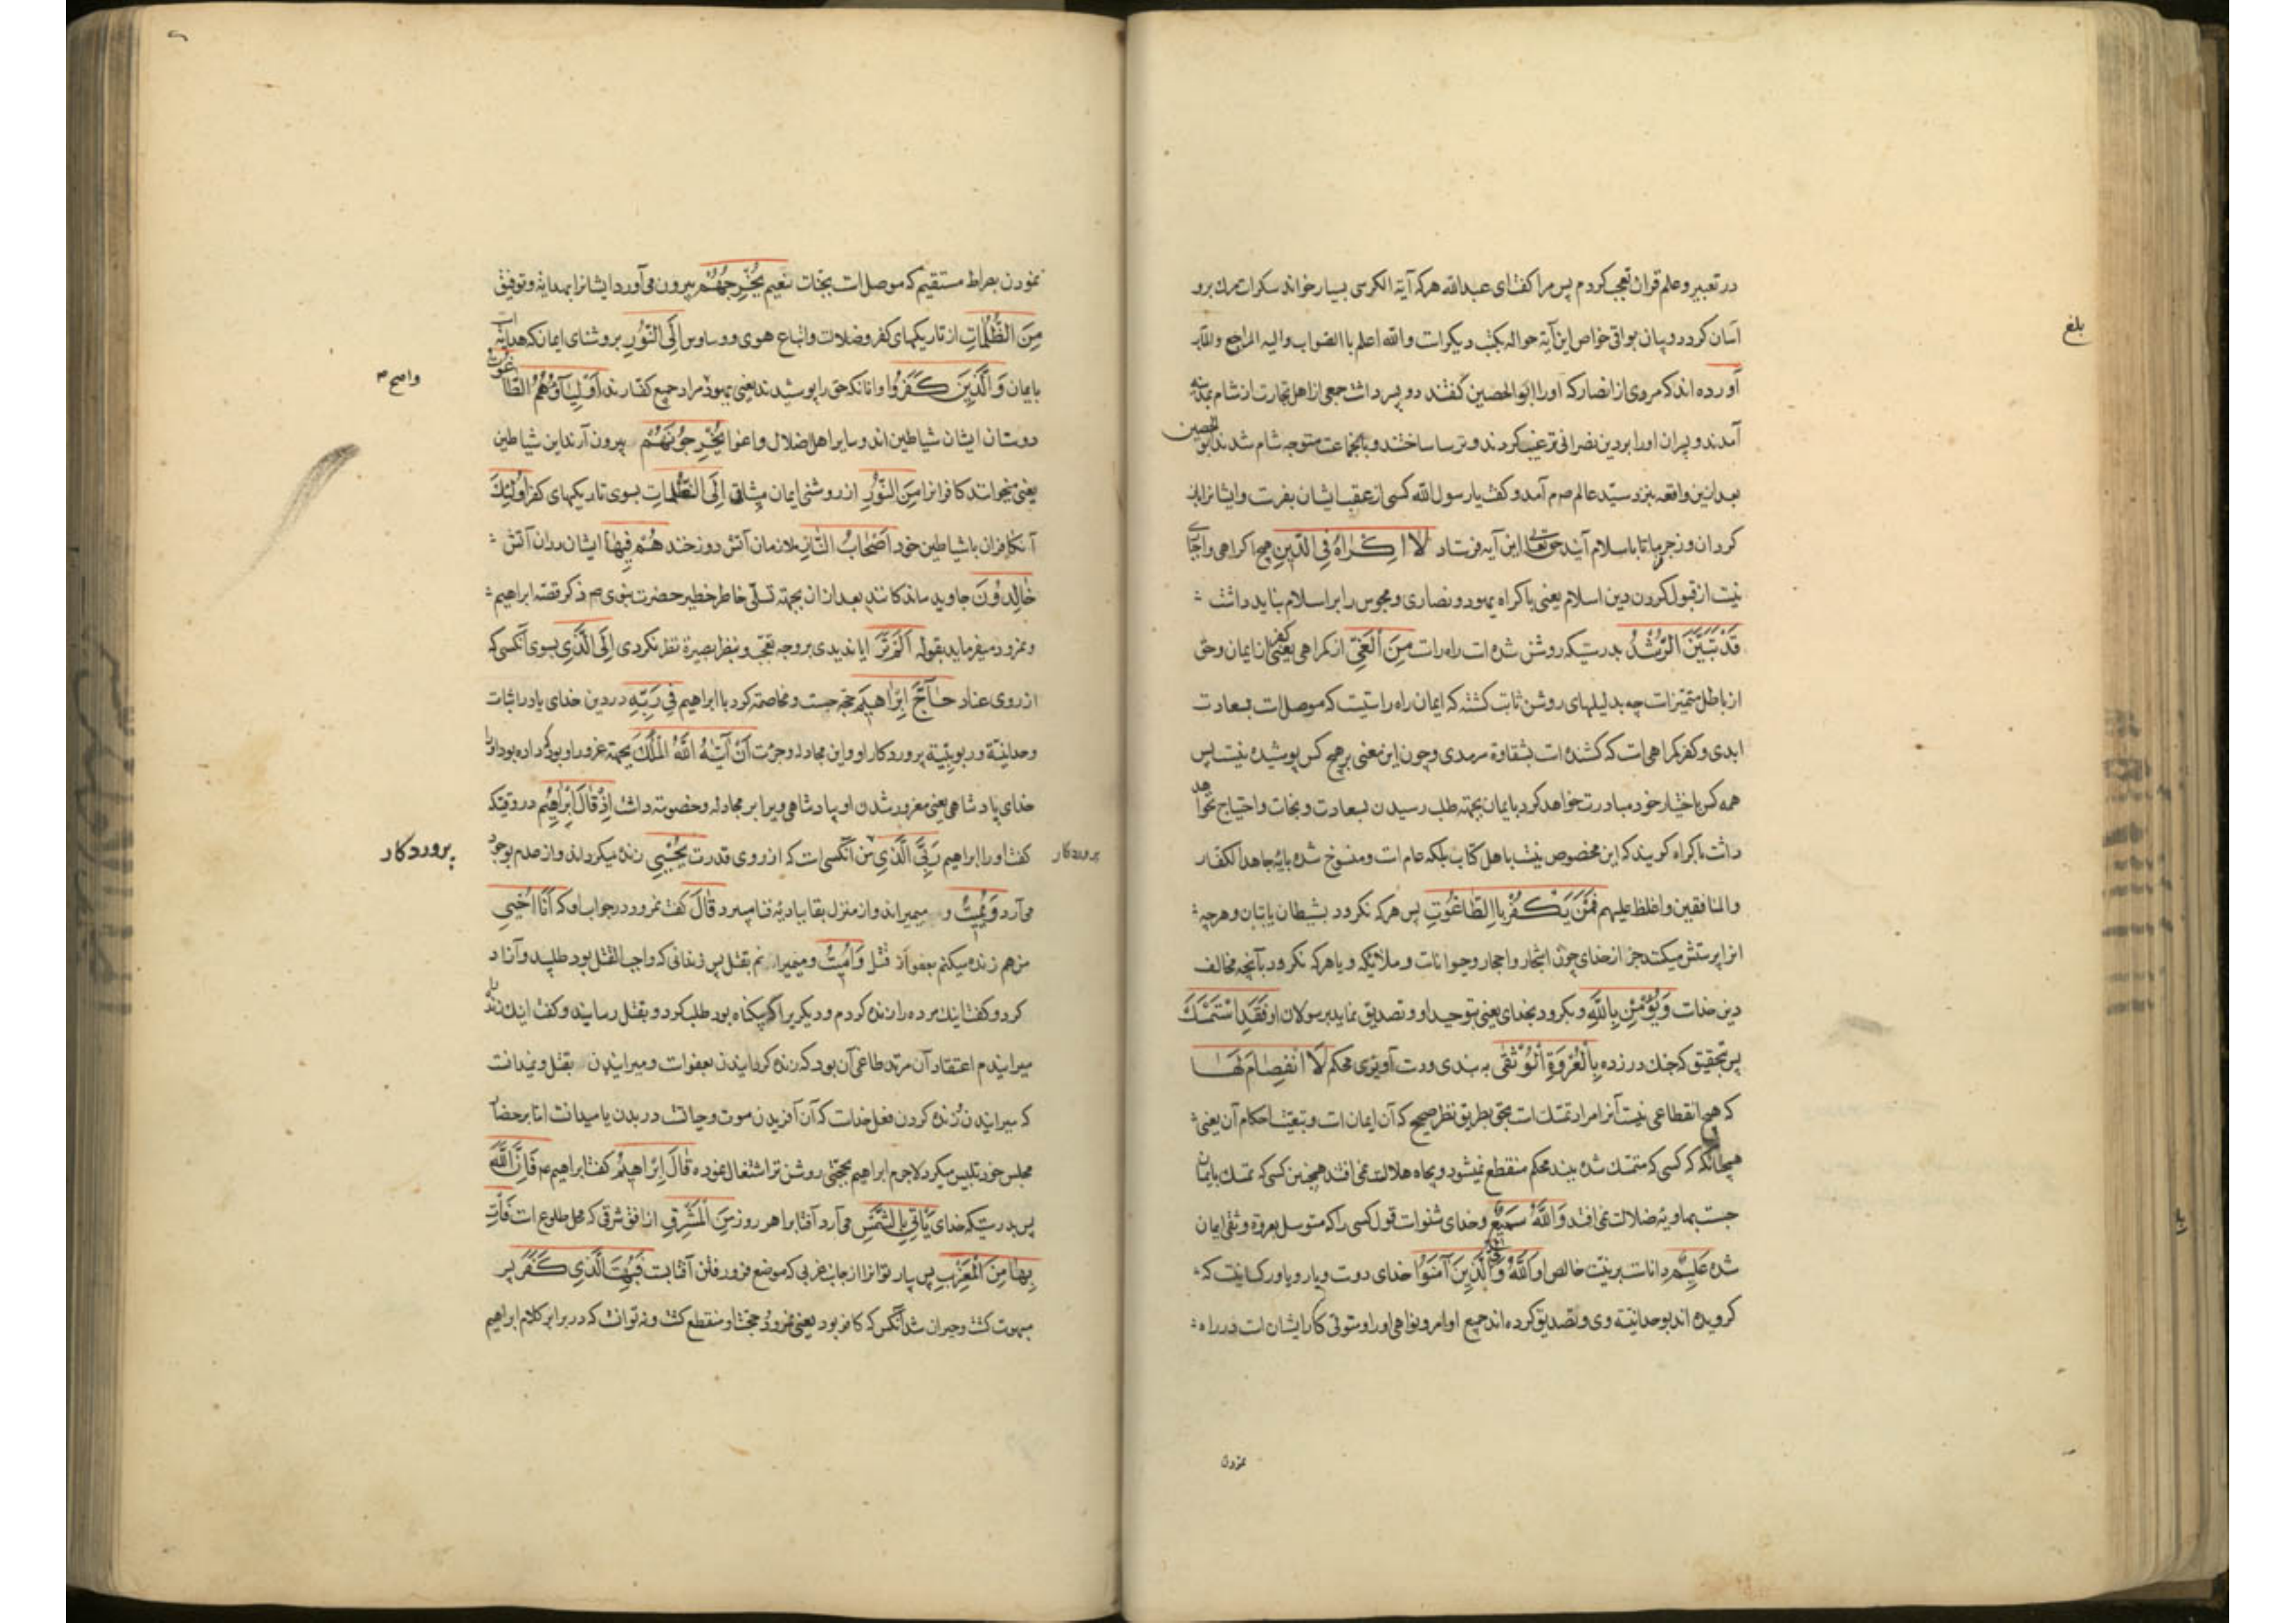 در تعبیر و علم قران تعجب کردم پس مرا کفت ای عبدالله هرکه آیة الکرسی بسیار خواند سکرات مرک برو
آسان کردد و بیان بواقی خواص این آیة حواله بکتب دیکرات والله اعلم باالصواب والیه المراجع والمآب
بلغ
آورده اند که مردی از انصار که او را ابوالحصین کفتند دو پسر داشت جمعی از اهل تجارت از شام بمدینه
آمدند و پسران او را بر دین نصرانی ترغیب کردند و ترسا ساختند و با جماعت متوجه شام شدند ابوالحصین
بعد ازین واقعه بنزد سید عالم صم آمد و کفت یا رسول الله کسی از عقب ایشان بفرست و ایشانرا باز
کردان و زجر فرما تا باسلام آیند حق تعالی این آیه فرستاد لا اکراه فی الدین هیچ اکراهی و اجباری
نیست از قبول کردن دین اسلام یعنی باکراه یهود و نصاری و مجوس را بر اسلام نباید داشت
قَدْ تَبَیَّنَ الرُّشْدُ بدرستیکه روشن شده است راه راست مِنَ الْغَیِّ از کمراهی یعنی کفر از ایمان و حق
از باطل متمیز است چه بدلیلهای روشن ثابت کشته که ایمان راه راستیست که موصل است بسعادت
ابدی و کفر کمراهی است که کشنده است بشقاوة سرمدی و چون این معنی بر هیچ کس پوشیده نیست پس
همه کس باختیار خود مبادرت خواهد کرد بایمان بجهة طلب رسیدن بسعادت و نجات و احتیاج نخواهد
داشت باکراه کویند که این مخصوص نیست باهل کتاب بلکه عام است و منسوخ شده بایۀ جاهد الکفار
والمنافقین واغلظ علیهم فَمَنْ یَکْفُرْ بِاالطّاغُوتِ پس هرکه نکرود بشیطان یا بتان و هرچه
انرا پرستش میکنند جز از خدای چون اشجار و احجار و حیوانات و ملائیکه و یا هرکه نکرود بآنچه مخالف
دین خداست وَیُؤْمِنْ بِاللّهِ و بکرود بخدای یعنی بتوحید او و تصدیق نماید برسولان او فَقَدِ اسْتَمْسَکَ
پس بتحقیق که چنک در زده بِالْعُرْوَةِ الْوُثْقی به بندی و دست آویزی محکم لَا انْفِصامَ لَها
که هیچ انقطاعی نیست آنرا مراد تمسک است بحق بطریق نظر صحیح که آن ایمان است و تبعیت احکام آن یعنی
همچنانکه کسی که متمسک شده ببند محکم منقطع نمیشود و بچاه هلاکت نمی افتد همچنین کسی که تمسک بایمان
جست بهاویۀ ضلالت نمی افتد وَاللّهُ سَمیعٌ و خدای شنواست قول کسی را که متوسل بعروة وثقی ایمان
شده عَلیمٌ داناست بر نیت خالص او اَللّهُ وَلِیُّ الَّذینَ آمَنُوا خدای دوست و یار و یاور کسانیست که
کرویده اند بوحدانیة وی و تصدیق کرده اند جمیع اوامر و نواهی او را و متولی کار ایشان است در راه
نمودن
نمودن بصراط مستقیم که موصل است بجنات نعیم یُخْرِجُهُمْ بیرون می آورد ایشانرا بهدایة و توفیق
مِنَ الظُّلُماتِ از تاریکیهای کفر و ضلالت و اتباع هوی و وساوس اِلَی النُّورِ بروشنای ایمان که هدایة
بایمان وَالَّذینَ کَفَرُوا و انانکه حق را پوشیدند یعنی یهود مراد جمیع کفارند اَوْلِیآؤُهُمُ الطّاغُوتُ
دوستان ایشان شیاطین اند و سایر اهل ضلال و اغوا یُخْرِجُونَهُمْ بیرون آرند این شیاطین
یعنی میخوانند کافرانرا مِنَ النُّورِ از روشنی ایمان میثاقی اِلَی الظُّلُماتِ بسوی تاریکیهای کفر اُولئِکَ
آنکافران با شیاطین خود اَصْحابُ النّارِ ملازمان آتش دوزخند هُمْ فِیها ایشان در ان آتش
خالِدُونَ جاوید ماندکانند بعد از ان بجهة تسلی خاطر خطیر حضرت نبوی ص ذکر قصّه ابراهیم
و نمرود میفرماید بقوله اَلَمْ تَرَ ایا ندیدی بر وجه تعجب و بنظر بصیرة نظر نکردی اِلَی الَّذی بسوی آنکسی که
از روی عناد حآجَّ اِبْراهیمَ حجة جست و مخاصمة کرد با ابراهیم فی رَبِّهِ در دین خدای یا در اثبات
وحدانیّة و ربوبیّة پروردکار او و این مجادله و جرءت اَنْ آتیهُ اللّهُ الْمُلْکَ بجهة غرور او بود که داده بود او را
خدای پادشاهی یعنی مغرور شدن او پادشاهی ویرا بر مجادله و خصومة داشت اِذْ قالَ اِبْراهیمُ در وقتیکه
کفت او را ابراهیم رَبِّیَ الَّذی من آنکسی است که از روی قدرت یُحْیی زنده میکرداند و از عدم بوجود
پروردکار
می آرد وَیُمیتُ و میمیراند و از منزل بقا ببادیۀ فنا میبرد قالَ کفت نمرود در جواب او که اَنَا اُحْیی
من هم زنده میکنم بعفو از قتل وَاُمیتُ و میمیرانم بقتل پس زندانی که واجب القتل بود طلبید و آزاد
کرد و کفت اینک مرده را زنده کردم و دیکریرا که بیکناه بود طلب کرد و بقتل رسانید و کفت اینک زنده را
میرانیدم اعتقاد آن مرتد طاغی آن بود که زنده کردانیدن بعفواست و میرانیدن بقتل و نمیدانست
که میرانیدن و زنده کردن فعل خداست که آن آفریدن موت و حیاتست در بدن یا میدانست اما بر حضار
مجلس خود تلبیس میکرد لاجرم ابراهیم بحجتی روشن تر اشتغال نموده قالَ اِبْراهیمُ کفت ابراهیم ع فَاِنَّ اللّهَ
پس بدرستیکه خدای یَأْتی بِالشَّمْسِ می آرد آفتابرا هر روز مِنَ الْمَشْرِقِ از افق شرقی که محل طلوع است فَأْتِ
بِها مِنَ الْمَغْرِبِ پس بیار تو انرا از جانب غربی که موضع فرو رفتن آفتابست فَبُهِتَ الَّذی کَفَرَ پس
مبهوت کشت و حیران شد آنکس که کافر بود یعنی نمرود و حجت او منقطع کشت و نتوانست که در برابر کلام ابراهیم